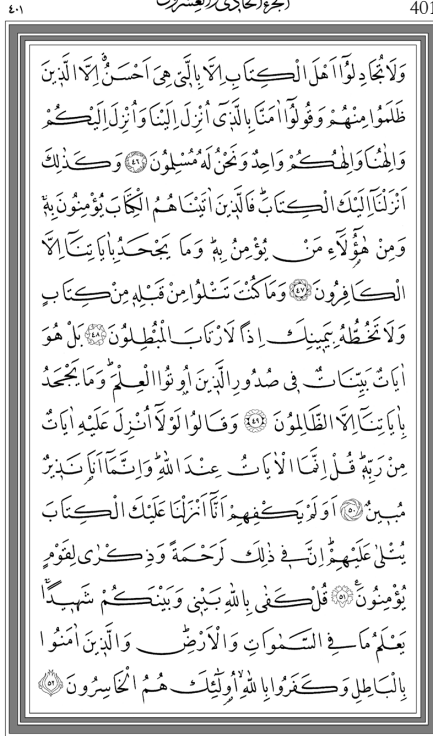 401
٤٠١
الجزء الحادي والعشرون
وَلَا تُجَادِلُٓوا اَهْلَ الْكِتَابِ اِلَّا بِالَّت۪ي هِيَ اَحْسَنُۗ اِلَّا الَّذ۪ينَ
ظَلَمُوا مِنْهُمْ وَقُولُٓوا اٰمَنَّا بِالَّذ۪ٓي اُنْزِلَ اِلَيْنَا وَاُنْزِلَ اِلَيْكُمْ
وَاِلٰهُنَا وَاِلٰهُكُمْ وَاحِدٌ وَنَحْنُ لَهُ مُسْلِمُونَ ﴿٤٦﴾ وَكَذٰلِكَ
اَنْزَلْنَٓا اِلَيْكَ الْكِتَابَۜ فَالَّذ۪ينَ اٰتَيْنَاهُمُ الْكِتَابَ يُؤْمِنُونَ بِه۪ۚ
وَمِنْ هٰٓؤُ۬لَٓاءِ مَنْ يُؤْمِنُ بِه۪ۜ وَمَا يَجْحَدُ بِاٰيَاتِنَٓا اِلَّا
الْكَافِرُونَ ﴿٤٧﴾ وَمَا كُنْتَ تَتْلُوا مِنْ قَبْلِه۪ مِنْ كِتَابٍ
وَلَا تَخُطُّهُ بِيَم۪ينِكَ اِذًا لَارْتَابَ الْمُبْطِلُونَ ﴿٤٨﴾ بَلْ هُوَ
اٰيَاتٌ بَيِّنَاتٌ ف۪ي صُدُورِ الَّذ۪ينَ اُو۫تُوا الْعِلْمَۜ وَمَا يَجْحَدُ
بِاٰيَاتِنَٓا اِلَّا الظَّالِمُونَ ﴿٤٩﴾ وَقَالُوا لَوْلَٓا اُنْزِلَ عَلَيْهِ اٰيَاتٌ
مِنْ رَبِّه۪ۜ قُلْ اِنَّمَا الْاٰيَاتُ عِنْدَ اللّٰهِۜ وَاِنَّمَٓا اَنَا۬ نَذ۪يرٌ
مُب۪ينٌ ﴿٥٠﴾ اَوَلَمْ يَكْفِهِمْ اَنَّٓا اَنْزَلْنَا عَلَيْكَ الْكِتَابَ
يُتْلٰى عَلَيْهِمْۜ اِنَّ ف۪ي ذٰلِكَ لَرَحْمَةً وَذِكْرٰى لِقَوْمٍ
يُؤْمِنُونَ۟ ﴿٥١﴾ قُلْ كَفٰى بِاللّٰهِ بَيْن۪ي وَبَيْنَكُمْ شَه۪يدًاۚ
يَعْلَمُ مَا فِي السَّمٰوَاتِ وَالْاَرْضِۜ وَالَّذ۪ينَ اٰمَنُوا
بِالْبَاطِلِ وَكَفَرُوا بِاللّٰهِۙ اُو۬لٰٓئِكَ هُمُ الْخَاسِرُونَ ﴿٥٢﴾